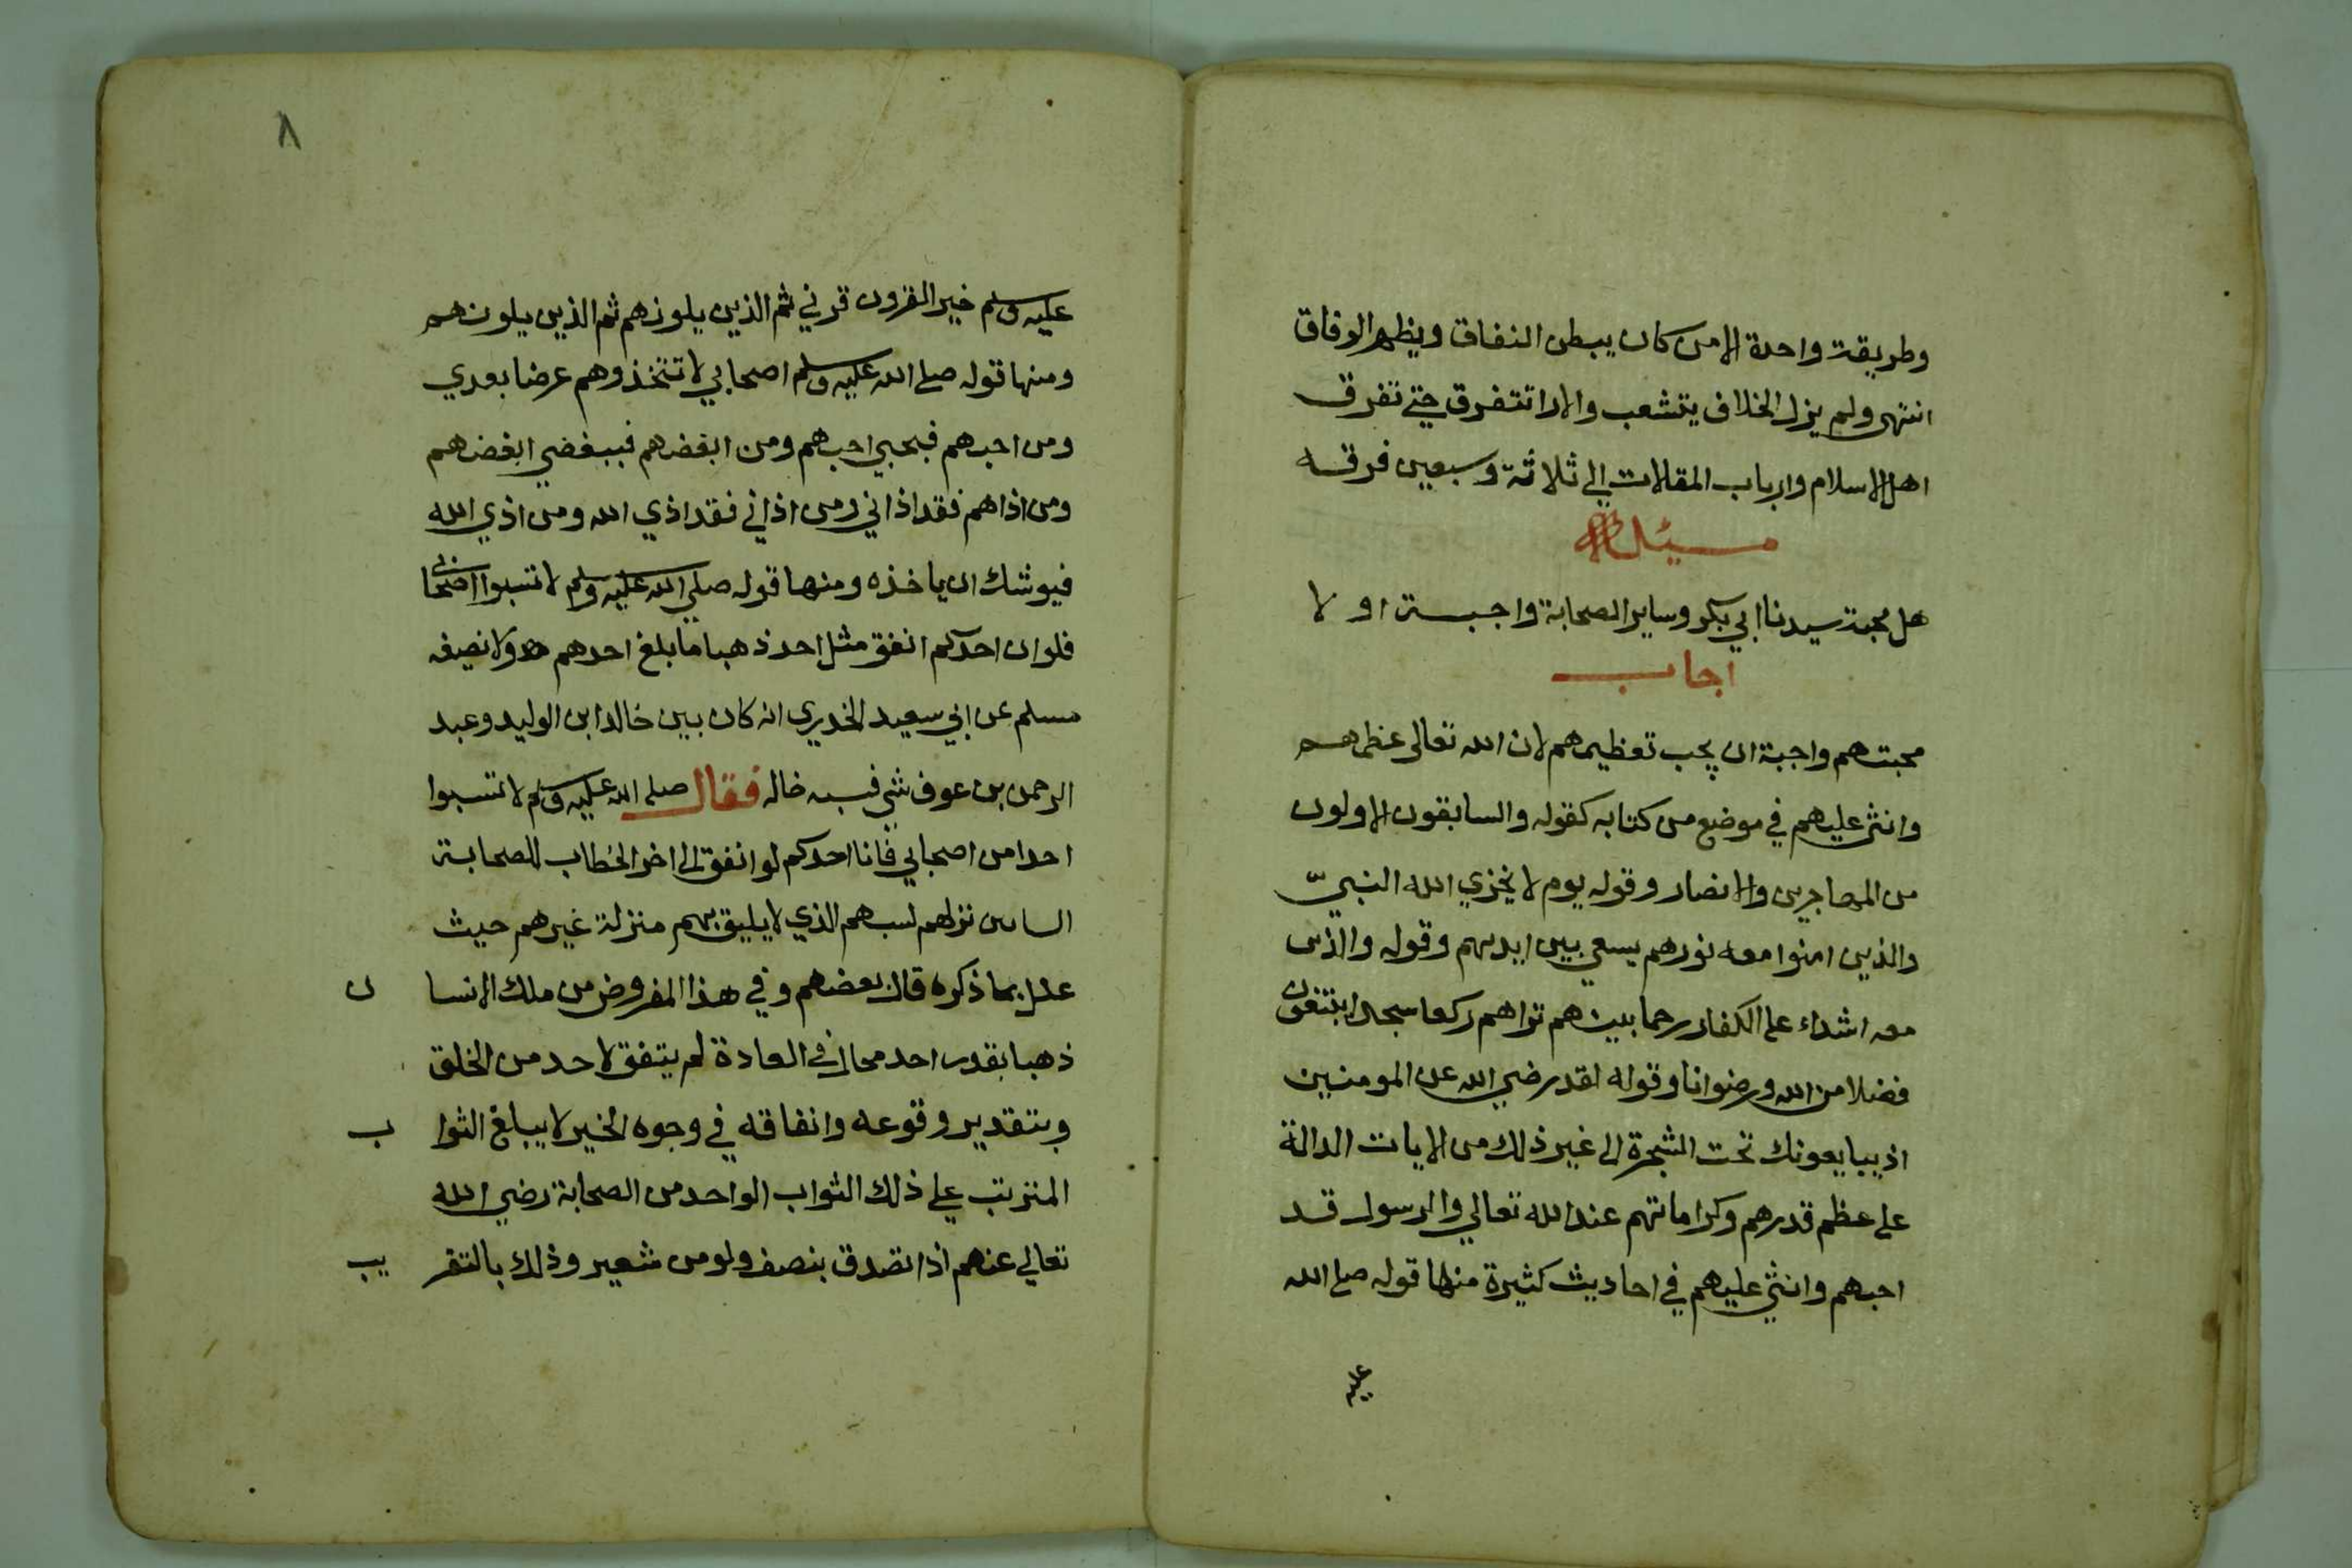 وطريقة واحدة الا من كان يبطن النفاق ويظهر الوفاق
انتهى ولم يزل الخلاف يتشعب والارا تتفرق حتى تفرق
اهل الاسلام وارباب المقالات الي ثلاثة وسبعين فرقه
سئل
هل محبة سيدنا ابي بكر وساير الصحابة واجبة او لا
اجاب
محبتهم واجبة اي يجب تعظيمهم لان الله تعالى عظمهم
واثني عليهم في موضع من كتابه كقوله والسابقون الاولون
من المهاجرين والانصار وقوله يوم لا يخزي الله النبيّ
والذين امنوا معه نورهم يسعي بين ايديهم وقوله والذين
معه اشداء على الكفار رحما بينهم تراهم ركعا سجدا يبتغون
فضلا من الله ورضوانا وقوله لقد رضي الله عن المومنين
اذ يبايعونك تحت الشجرة الى غير ذلك من الايات الدالة
على عظم قدرهم وكراماتهم عند الله تعالي والرسول قد
احبهم واثني عليهم في احاديث كثيرة منها قوله صلى الله
عليه
٨
عليه وسلم خير القرون قرني ثم الذين يلونهم ثم الذين يلونهم
ومنها قوله صلى الله عليه وسلم اصحابي لا تتخذوهم عرضا بعدي
ومن احبهم فبحبي احبهم ومن ابغضهم فببغضي ابغضهم
ومن اذاهم فقد اذاني ومن اذاني فقد اذي الله ومن اذي الله
فيوشك ان ياخذه ومنها قوله صلي الله عليه وسلم لا تسبوا اصحابي
فلو ان احدكم انفق مثل احد ذهبا ما بلغ احدهم ولا نصيفه
مسلم عن ابي سعيد الخدري انه كان بين خالد ابن الوليد وعبد
الرحمن بن عوف شي فسبه خالد فقال صلى الله عليه وسلم لا تسبوا
احدا من اصحابي فانا احدكم لو انفق الى اخر الخطاب للصحابة
السابين نزلهم لسبهم الذي لا يليق بهم منزلة غيرهم حيث
علل بما ذكره قال بعضهم وفي هذا المفروض من ملك الانسان
ذهبا بقدر احد محال في العادة لم يتفق لاحد من الخلق
وبتقدير وقوعه وانفاقه في وجوه الخير لا يبلغ الثواب
المترتب علي ذلك الثواب الواحد من الصحابة رضي الله
تعالي عنهم اذا تصدق بنصف ولو من شعير وذلك بالتقريب